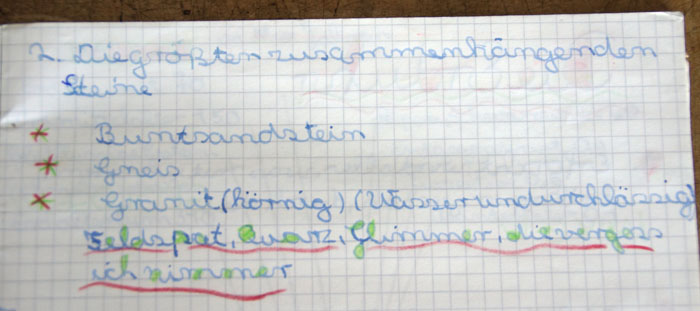 2. Die größten zusammenhängenden
Steine
* Buntsandstein
* Gneis
* Granit (körnig) (Wasserundurchlässig)
Feldspat, Quarz, Glimmer, die vergess
ich nimmer